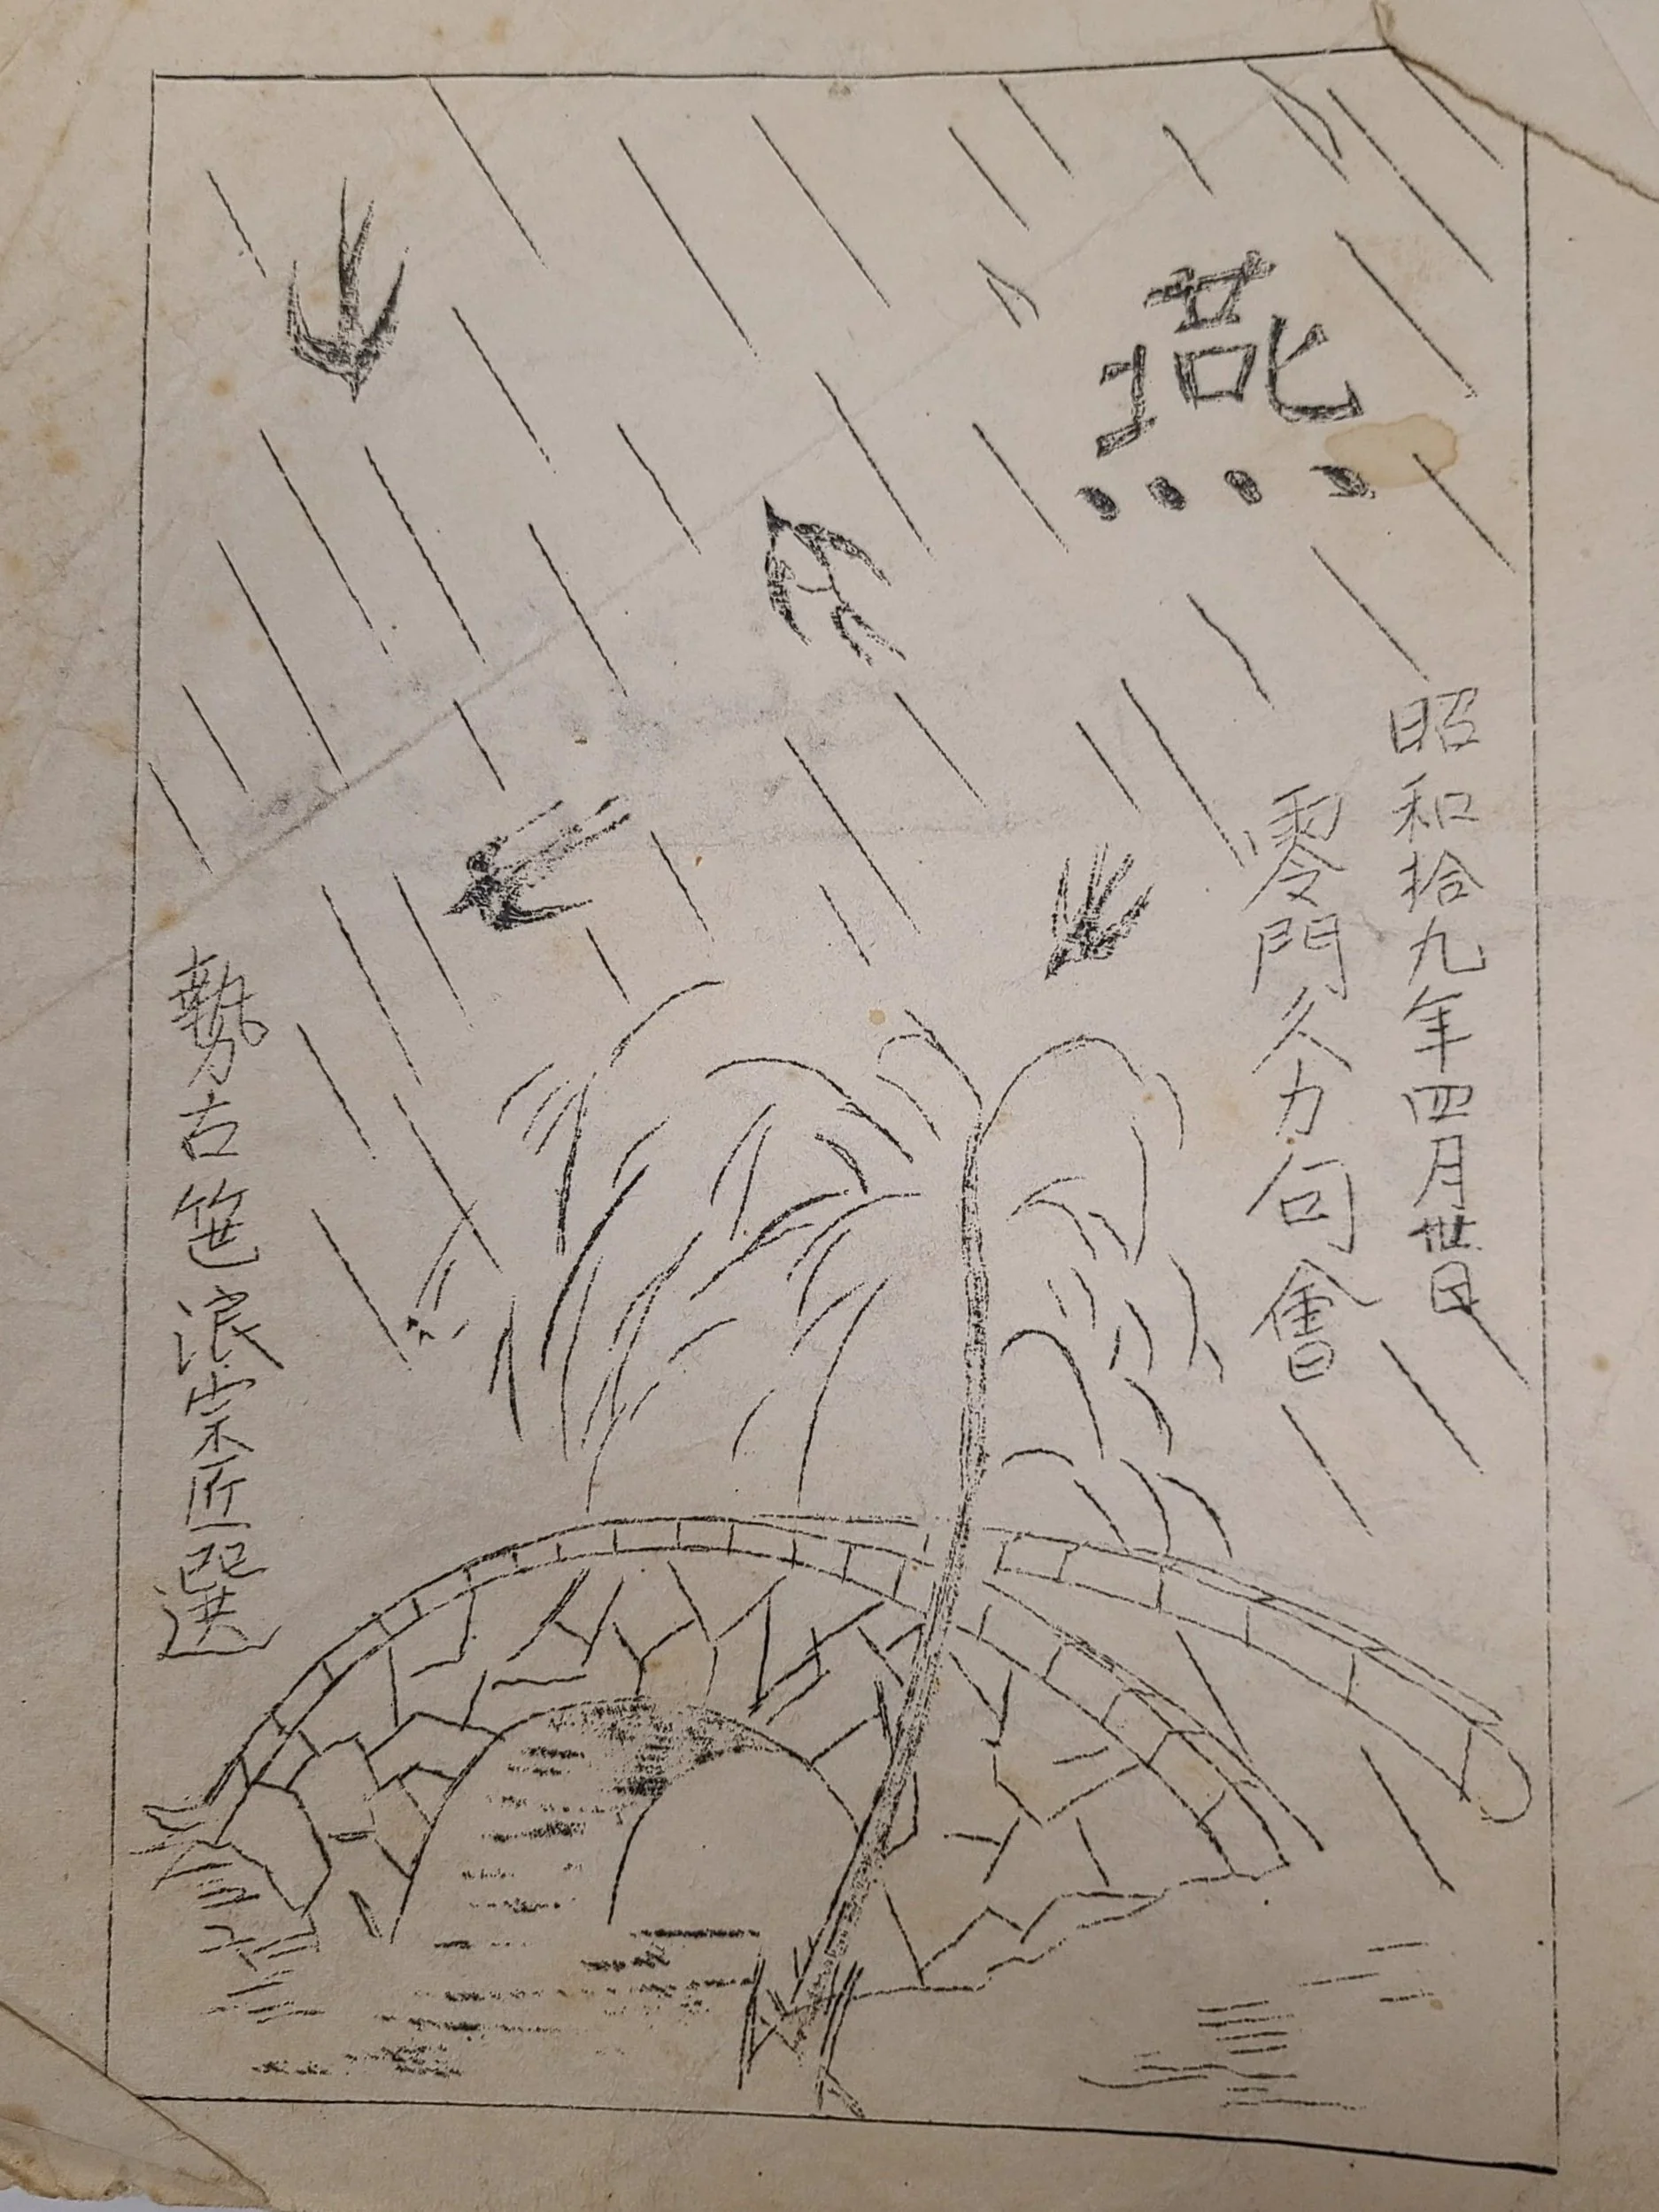 燕
昭和拾九年四月丗日
零門久力句會
勢古笹浪宗匠選